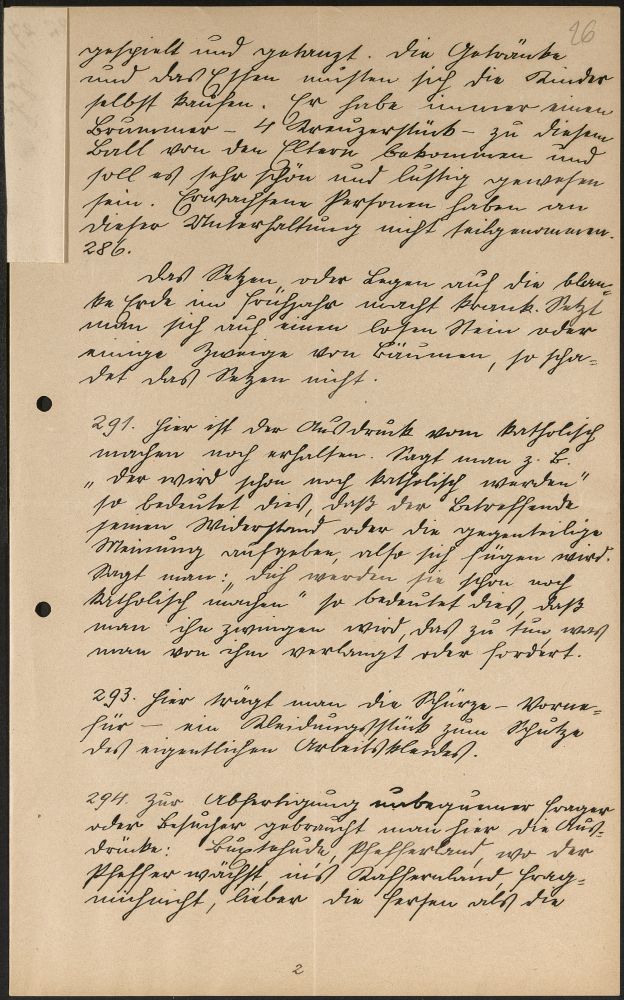 26
gespielt und getanzt. Die Getränke
und das Essen mußten sich die Kinder
selbst kaufen. Er habe immer einen
Brummer - 4 Kreuzerstück - zu diesem
Ball von den Eltern bekommen und
soll es sehr schön und lustig gewesen
sein. Erwachsene Personen haben an
dieser Unterhaltung nicht teilgenommen.
286.
Das Setzen oder Legen auf die blan-
ke Erde im Frühjahr macht krank. Setzt
man sich auf einen losen Stein oder
einige Zweige von Bäumen, so scha=
det das Setzen nicht.
291. Hier ist der Ausdruck vom katholisch
machen noch erhalten. Sagt man z. B.
"der wird schon noch katholisch werden"
so bedeutet dies, daß der Betreffende
seinen Widerstand oder die gegenteilige
Meinung aufgeben, also sich fügen wird.
Sagt man: "dich werden sie schon noch
katholisch machen" so bedeutet dies, daß
man ihn zwingen wird, das zu tun, was
man von ihm verlangt oder fordert.
293. Hier trägt man die Schürze - Vorne=
für - ein Kleidungsstück zum Schutze
des eigentlichen Arbeitskleides.
294. Zur Abfertigung unbequemer Frager
oder Besucher gebraucht man hier die Aus=
drücke: Buxtehude, Pfefferland, wo der
Pfeffer wächst, ins Kaffernland, frag=
michnicht, lieber die Fersen als die
2